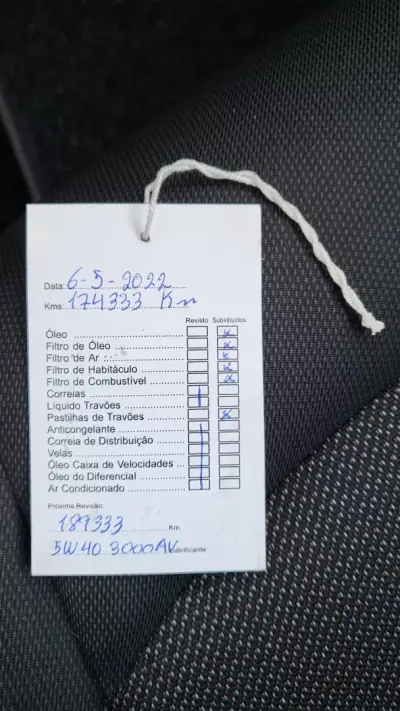 Data: 6-5-2022
Kms: 174333 Km
Revisto Substituídos
Óleo x
Filtro de Óleo x
Filtro de Ar x
Filtro de Habitáculo x
Filtro de Combustível x
Correias
Líquido Travões
Pastilhas de Travões x
Anticongelante
Correia de Distribuição
Velas
Óleo Caixa de Velocidades
Óleo do Diferencial
Ar Condicionado
Próxima Revisão:
189333 Km.
5W40 3000AV Lubrificante